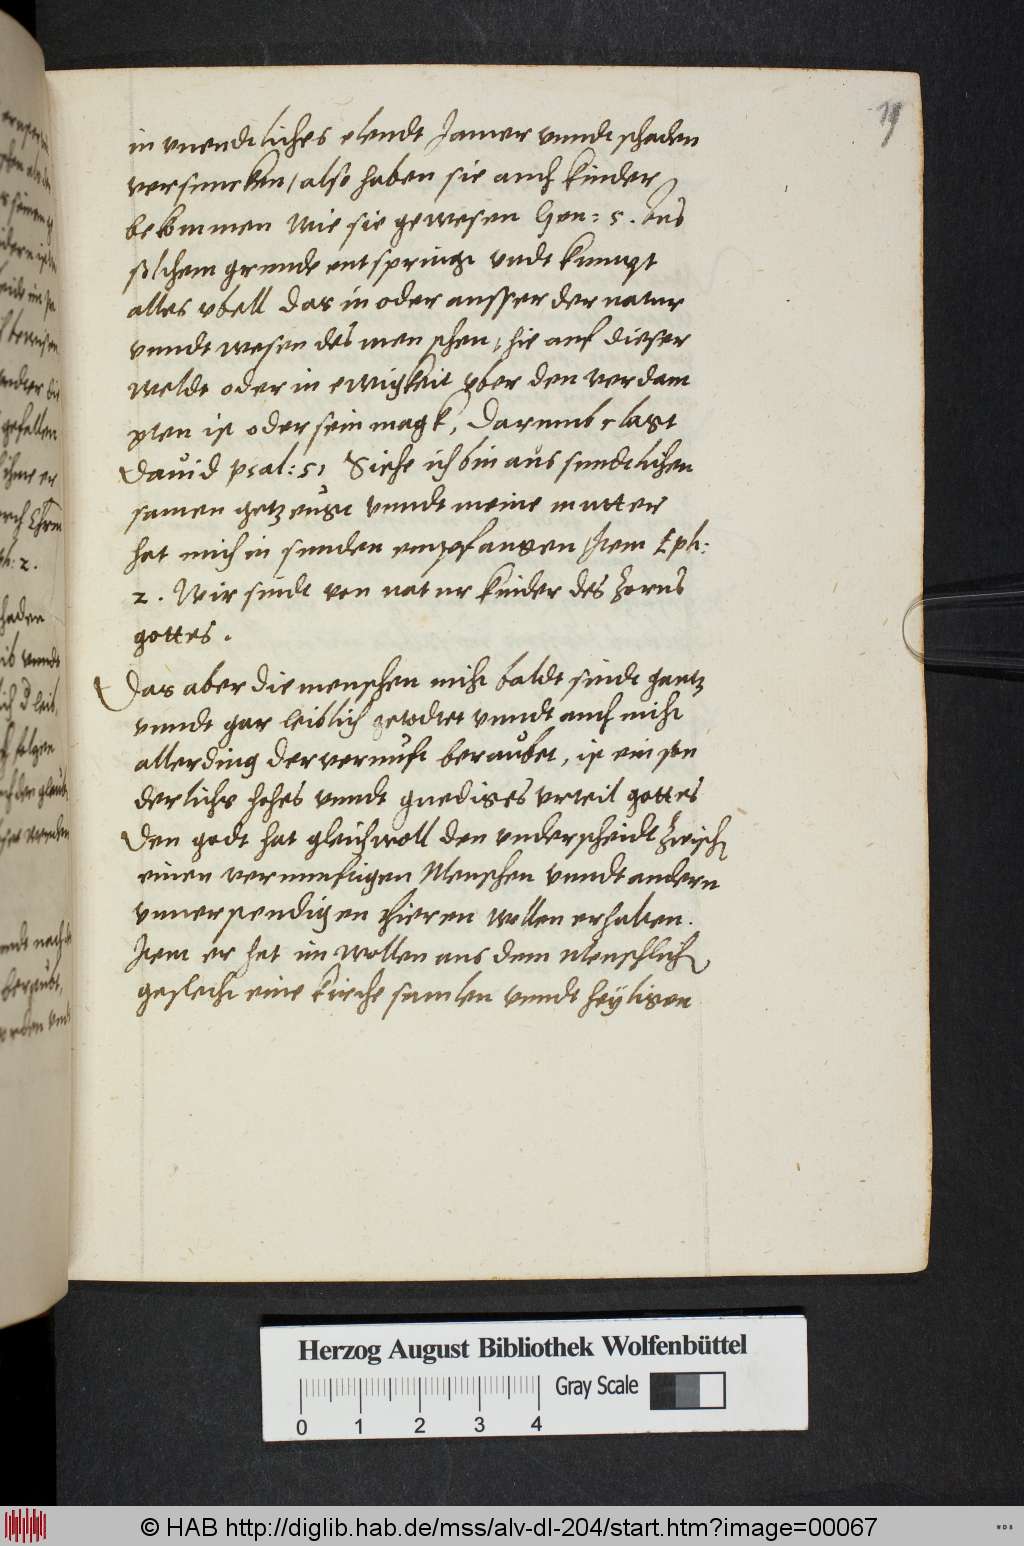 in vnendtliches elendt Jamer vnndt schaden
versuncken / also haben sie auch kinder
bekommen wie sie gewesen Gen: 5. Aus
solchem grunde entspringt vndt kumpt
alles vbell das in oder ausser der natur
vnndt wesen des menschen, hie auf dieser
weldt oder in ewigkeit vber den verdam
pten ist oder sein magk, Darumb clagt
Dauid psal: 51 Siehe ich bin aus sundtlichen
samen getzeugt vnndt meine mutter
hat mich in sunden empfangen Item Eph:
2. Wir sindt von natur kinder des zorns
gottes.
Das aber die menschen nicht baldt sindt gantz
vnndt gar leiblich getodtet vnndt auch nicht
allerding der vernunft beraubet, ist ein son
derlichs hohes vnndt gnediges vrteil gottes
Den godt hat gleichwoll den vnderscheidt zwischen
einen vernunftigen Menschen vnndt andern
vnuerstendigen thieren wollen erhalten.
Item er hat im wollen aus dem Menschlichen
geslecht eine kirche samlen vnndt heyligen
Herzog August Bibliothek Wolfenbüttel
Gray Scale
0 1 2 3 4
© HAB http://diglib.hab.de/mss/alv-dl-204/start.htm?image=00067